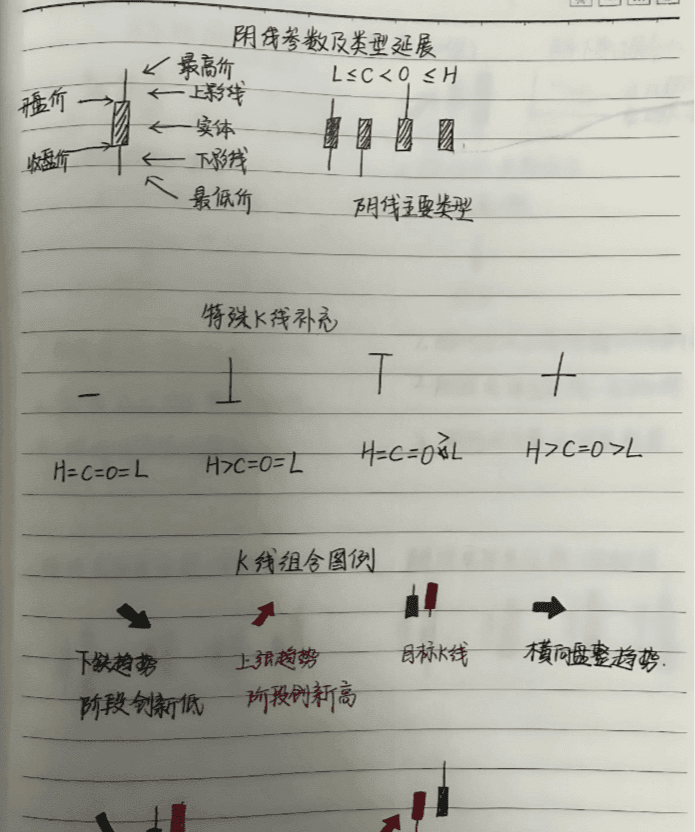 阴线参数及类型延展
最高价
上影线
开盘价
实体
收盘价
下影线
最低价
L≤C<O≤H
阴线主要类型
特殊K线补充
H=C=O=L
H>C=O=L
H=C=O>L
H>C=O>L
K线组合图例
下跌趋势
阶段创新低
上涨趋势
阶段创新高
目标K线
横向盘整趋势.